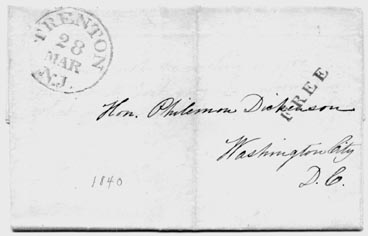 TRENTON
28
MAR
N.J.
FREE
Hon. Philemon Dickenson
Washington City
D.C.
1840